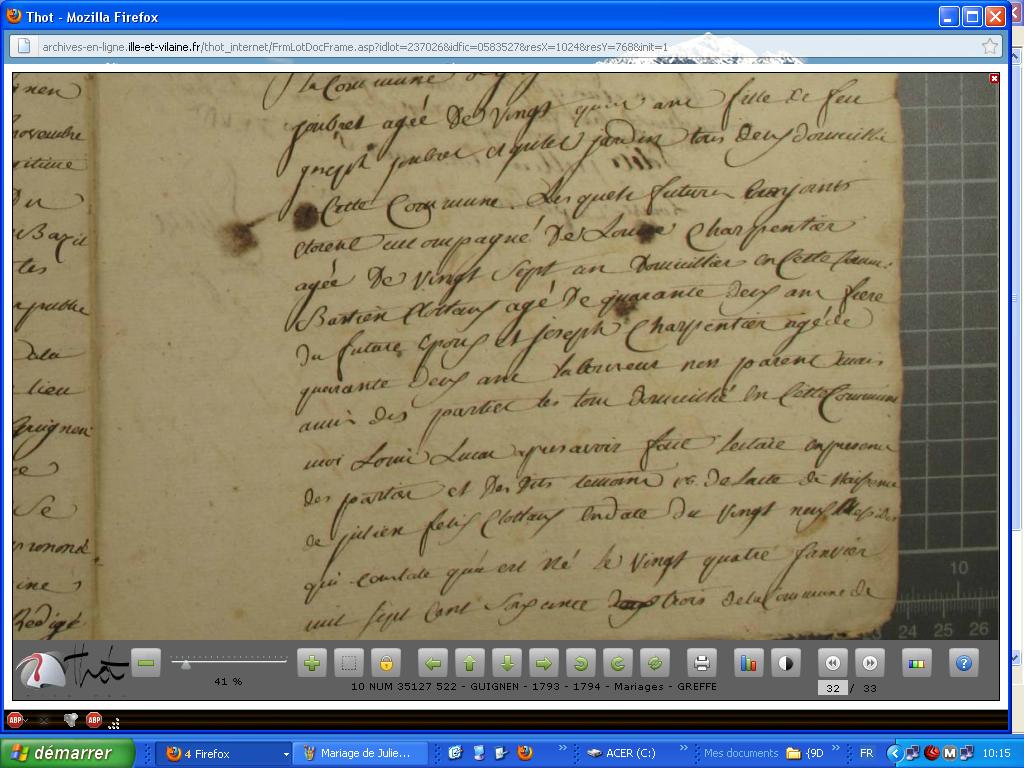 Thot - Mozilla Firefox
archives-en-ligne.ille-et-vilaine.fr/thot_internet/FrmLotDocFrame.asp?idlot=237026&idfic=05835278&resX=1024&resY=768&init=1
la Commune
joubrel agée De Vingt ans fille de feu
joseph joubrel et jardin tous deux domicillié
Cette Commune. Lesquels futurs Conjoints
etoient accompagné De Louise Charpentier
agée De Vingt Sept an Domicillier en Cette Comm:
Bastien Clottaux agé De quarante deux ans frere
du future Epoux et joseph Charpentier agé de
quarante deux ans laboureur non parent mais
amis des partier les tous domicillié en Cette Commune
moi Louis Lucas apres avoir fait lecture en presence
des partie et Des Dits temoins de Lacte de Naissence
de julien felix Clottaux en date du Vingt neuf
qui constate qu'il est Né le Vingt quatre janvier
mil sept Cent Soixcente trois de la Commune de
novembre
gitime
Du
Bazil
tes
publie
dela
lieu
Guignen
ce
Se
prononcé
Redigé
10
23 24 25 26
Thót
41 %
10 NUM 35127 522 - GUIGNEN - 1793 - 1794 - Mariages - GREFFE
32 / 33
ABP
ABP
démarrer
4 Firefox
Mariage de Julie...
ACER (C:)
Mes documents
{9D
FR
10:15